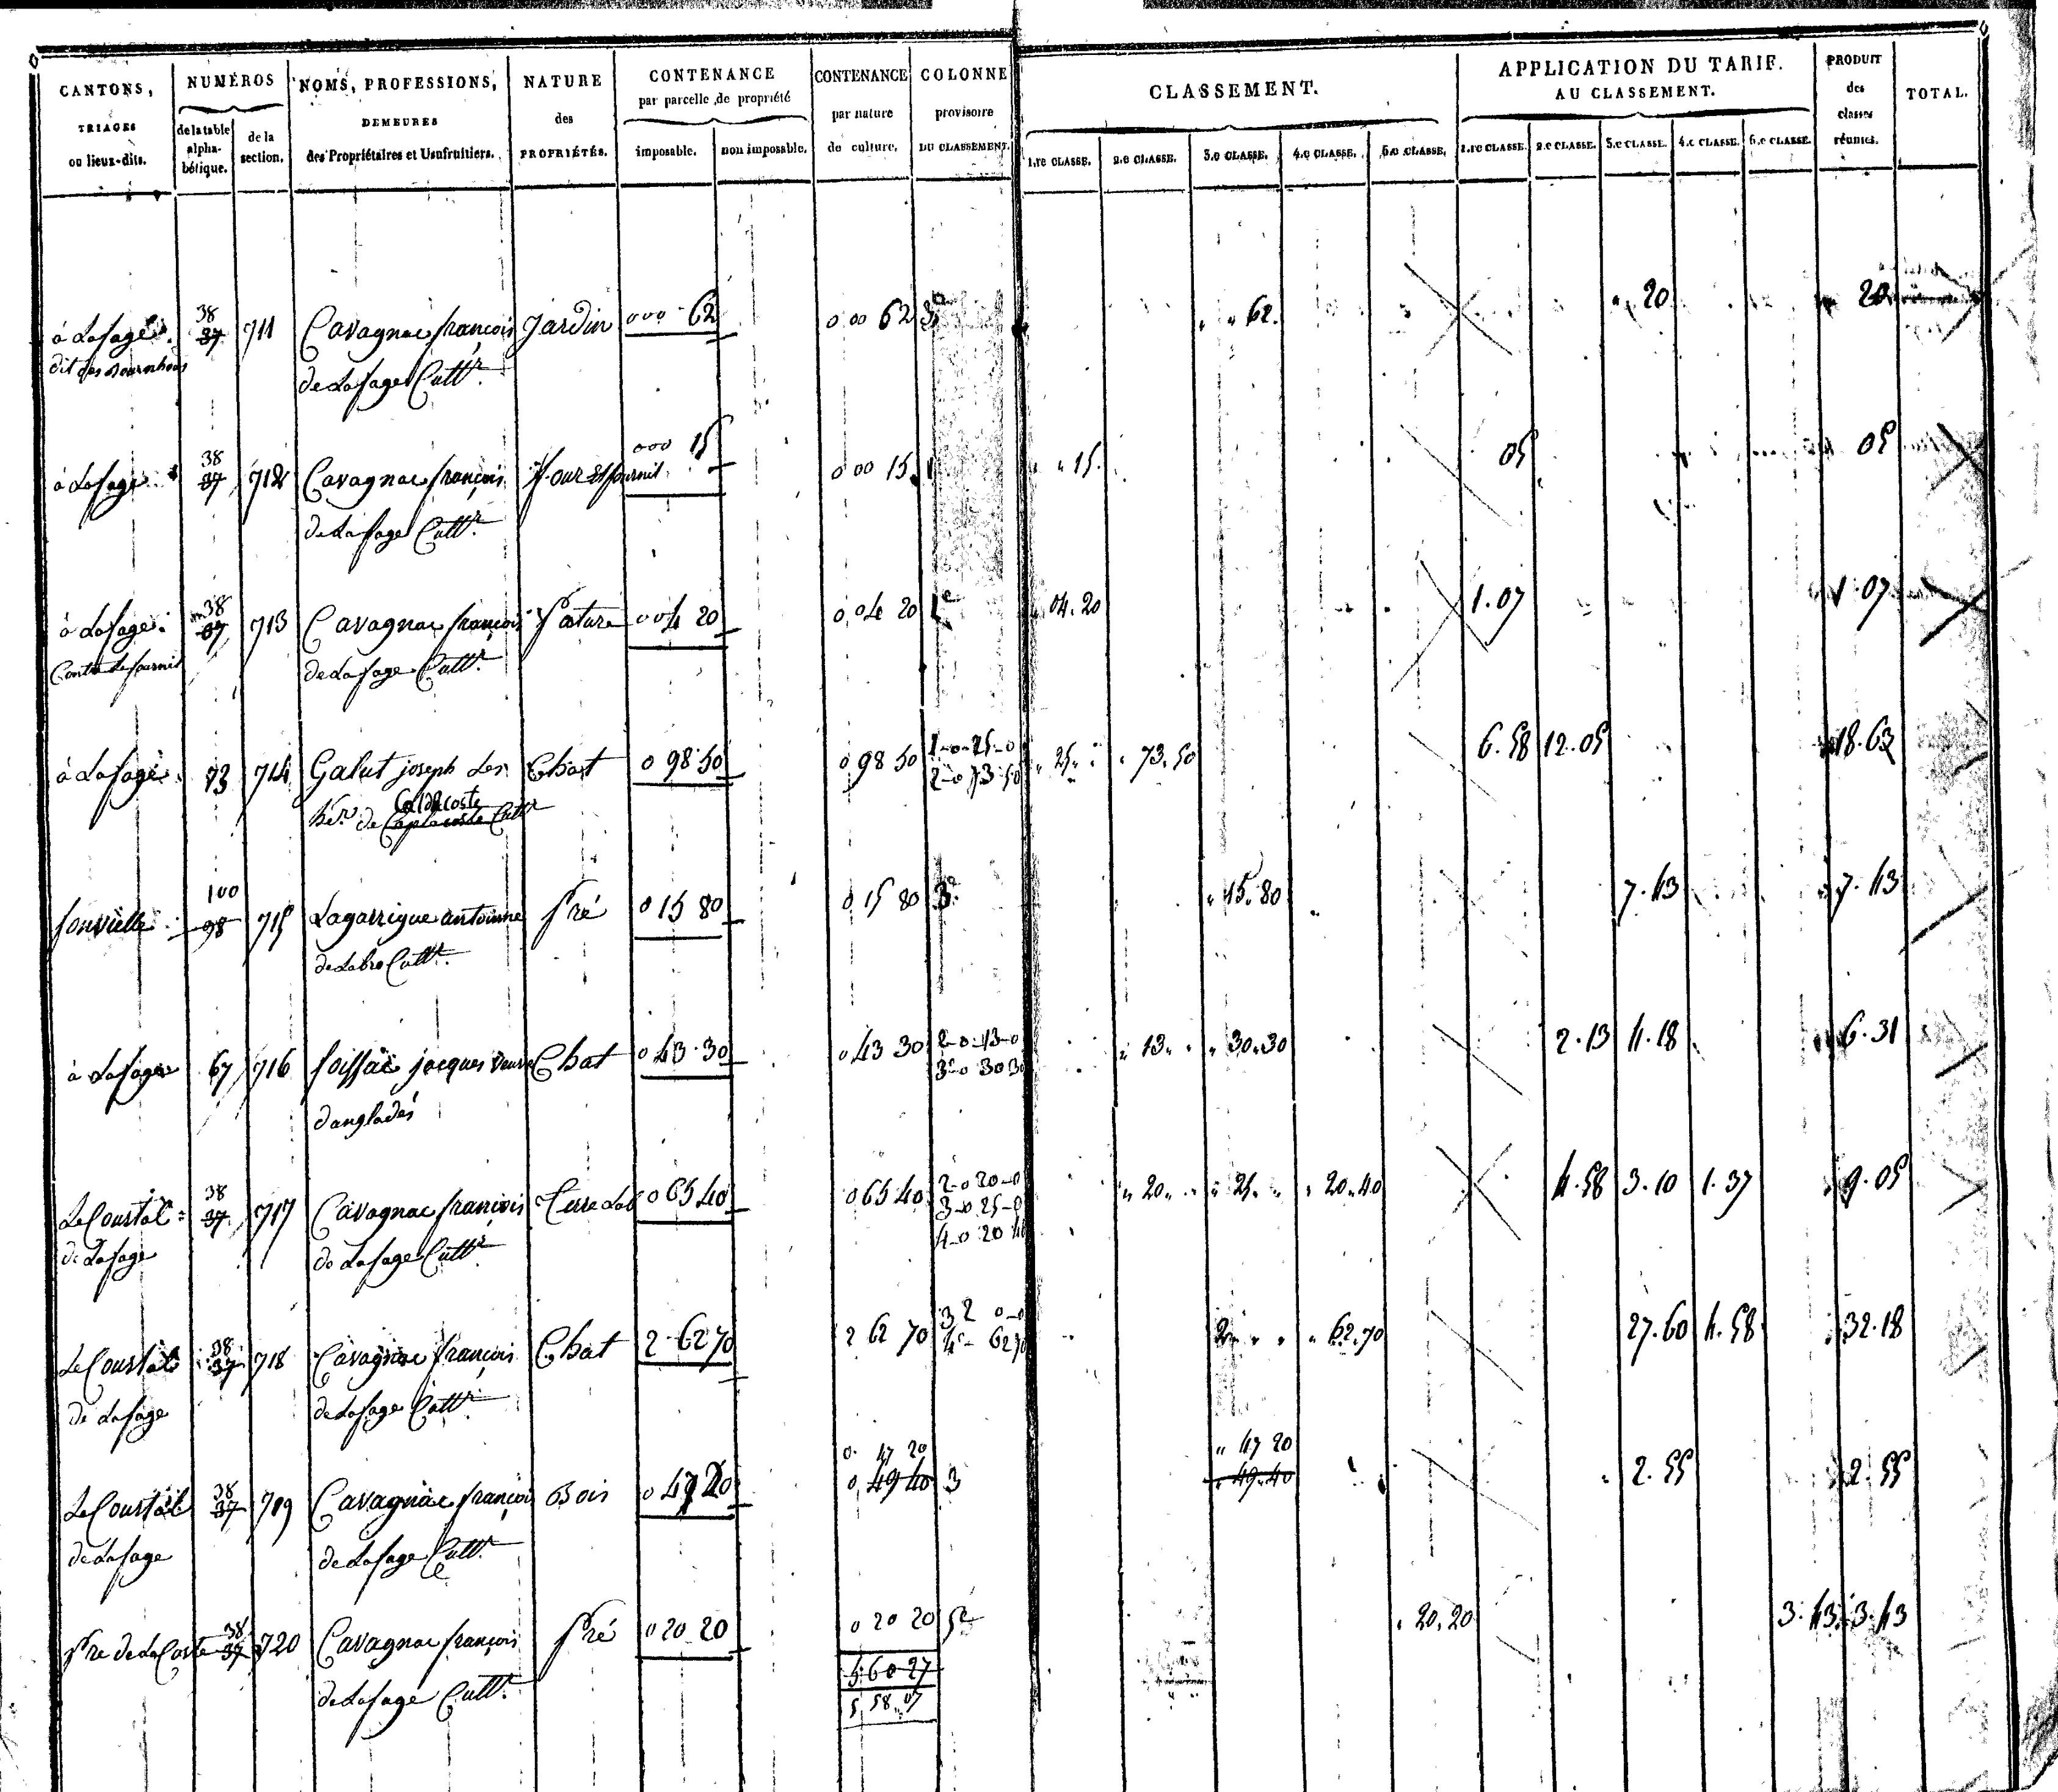 CANTONS, NUMÉROS NOMS, PROFESSIONS, NATURE CONTENANCE CONTENANCE COLONNE CLASSEMENT. APPLICATION DU TARIF. PRODUIT TOTAL.
TRIAGES DEMEURES des par parcelle de propriété par nature provisoire AU CLASSEMENT. des
ou lieux-dits. de la table alpha-bétique. de la section. des Propriétaires et Usufruitiers. PROPRIÉTÉS. imposable. non imposable. de culture. DU CLASSEMENT. 1.re CLASSE. 2.e CLASSE. 3.e CLASSE. 4.e CLASSE. 5.e CLASSE. 1.re CLASSE. 2.e CLASSE. 3.e CLASSE. 4.e CLASSE. 5.e CLASSE. classes réunies.
38
à Lafage 37 711 Cavagnac françois Jardin 000 62 0 00 62 3e " " 62. 20 20
dit des
de Lafage Cultr.
38
à Lafage 37 712 Cavagnac françois four et fournil 000 15 0 00 15 1 " 15. 05 05
de Lafage Cultr.
38
à Lafage 37 713 Cavagnac françois Pature 0 04 20 0 04 20 1e 04.20 1.07 1.07
Contre le fournil de Lafage Cultr.
à Lafage 73 714 Galut joseph Les Chat 0 98 50 0 98 50 1-0-25-0 " 25 " " 73.50 6.58 12.05 18.63
2-0 73 50
hers. de Caplacoste Cultr
100
fonvielle 98 715 Lagarrigue antoinne Pré 0 15 80 0 15 80 3e " 15.80 7.43 7.43
de Labro Cultr.
à Lafage 67 716 foissac jacques veuve Chat 0 43 30 0 43 30 2-0-13-0 " 13 " " 30.30 2.13 4.18 6.31
3-0 30 30
d'anglades
38
Le Coustal 37 717 Cavagnac françois Terre Lab 0 65 40 0 65 40 2-0 20-0 " 20 " " 25 " " 20.40 4.58 3.10 1.37 9.05
3-0 25-0
4-0 20 40
de Lafage de Lafage Cultr
38
Le Coustal 37 718 Cavagnac françois Chat 2 62 70 2 62 70 3 2 0-0 2 " " " 62.70 27.60 4.58 32.18
4e- 62 70
de Lafage de Lafage Cultr
0 47 20 " 47 20
38
Le Coustal 37 719 Cavagnac françois Bois 0 47 20 0 49 40 3 " 49.40 2.55 2.55
de Lafage de Lafage Cultr.
38
Pre de La Coste 37 720 Cavagnac françois Pré 0 20 20 0 20 20 5e " 20.20 3.43 3.43
5.60 27
de Lafage Cultr.
5 58 07